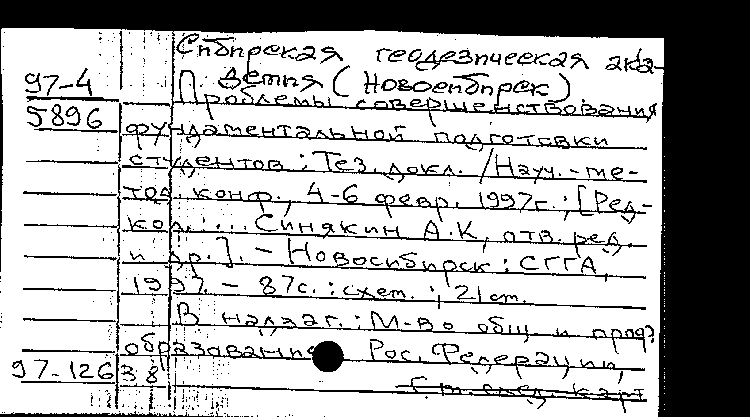 Сибирская геодезическая ака-
97-4
демия (Новосибирск)
Проблемы совершенствования
5896
фундаментальной подготовки
студентов : Тез. докл. / Науч.-ме-
тод. конф., 4-6 февр. 1997г. ; [Ред-
кол.: ... Синякин А.К, отв. ред.
и др.]. - Новосибирск : СГГА,
1997. - 87с. : схем. ; 21 см.
В надзаг. : М-во общ. и проф.
образования Рос. Федерации,
97-12638
См. след. карт